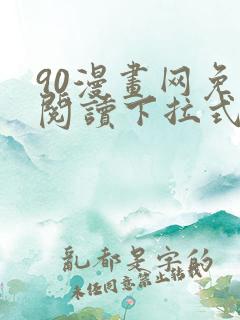 90漫畫网免
閱讀下拉式
亂都是字的
未任同意禁止转载